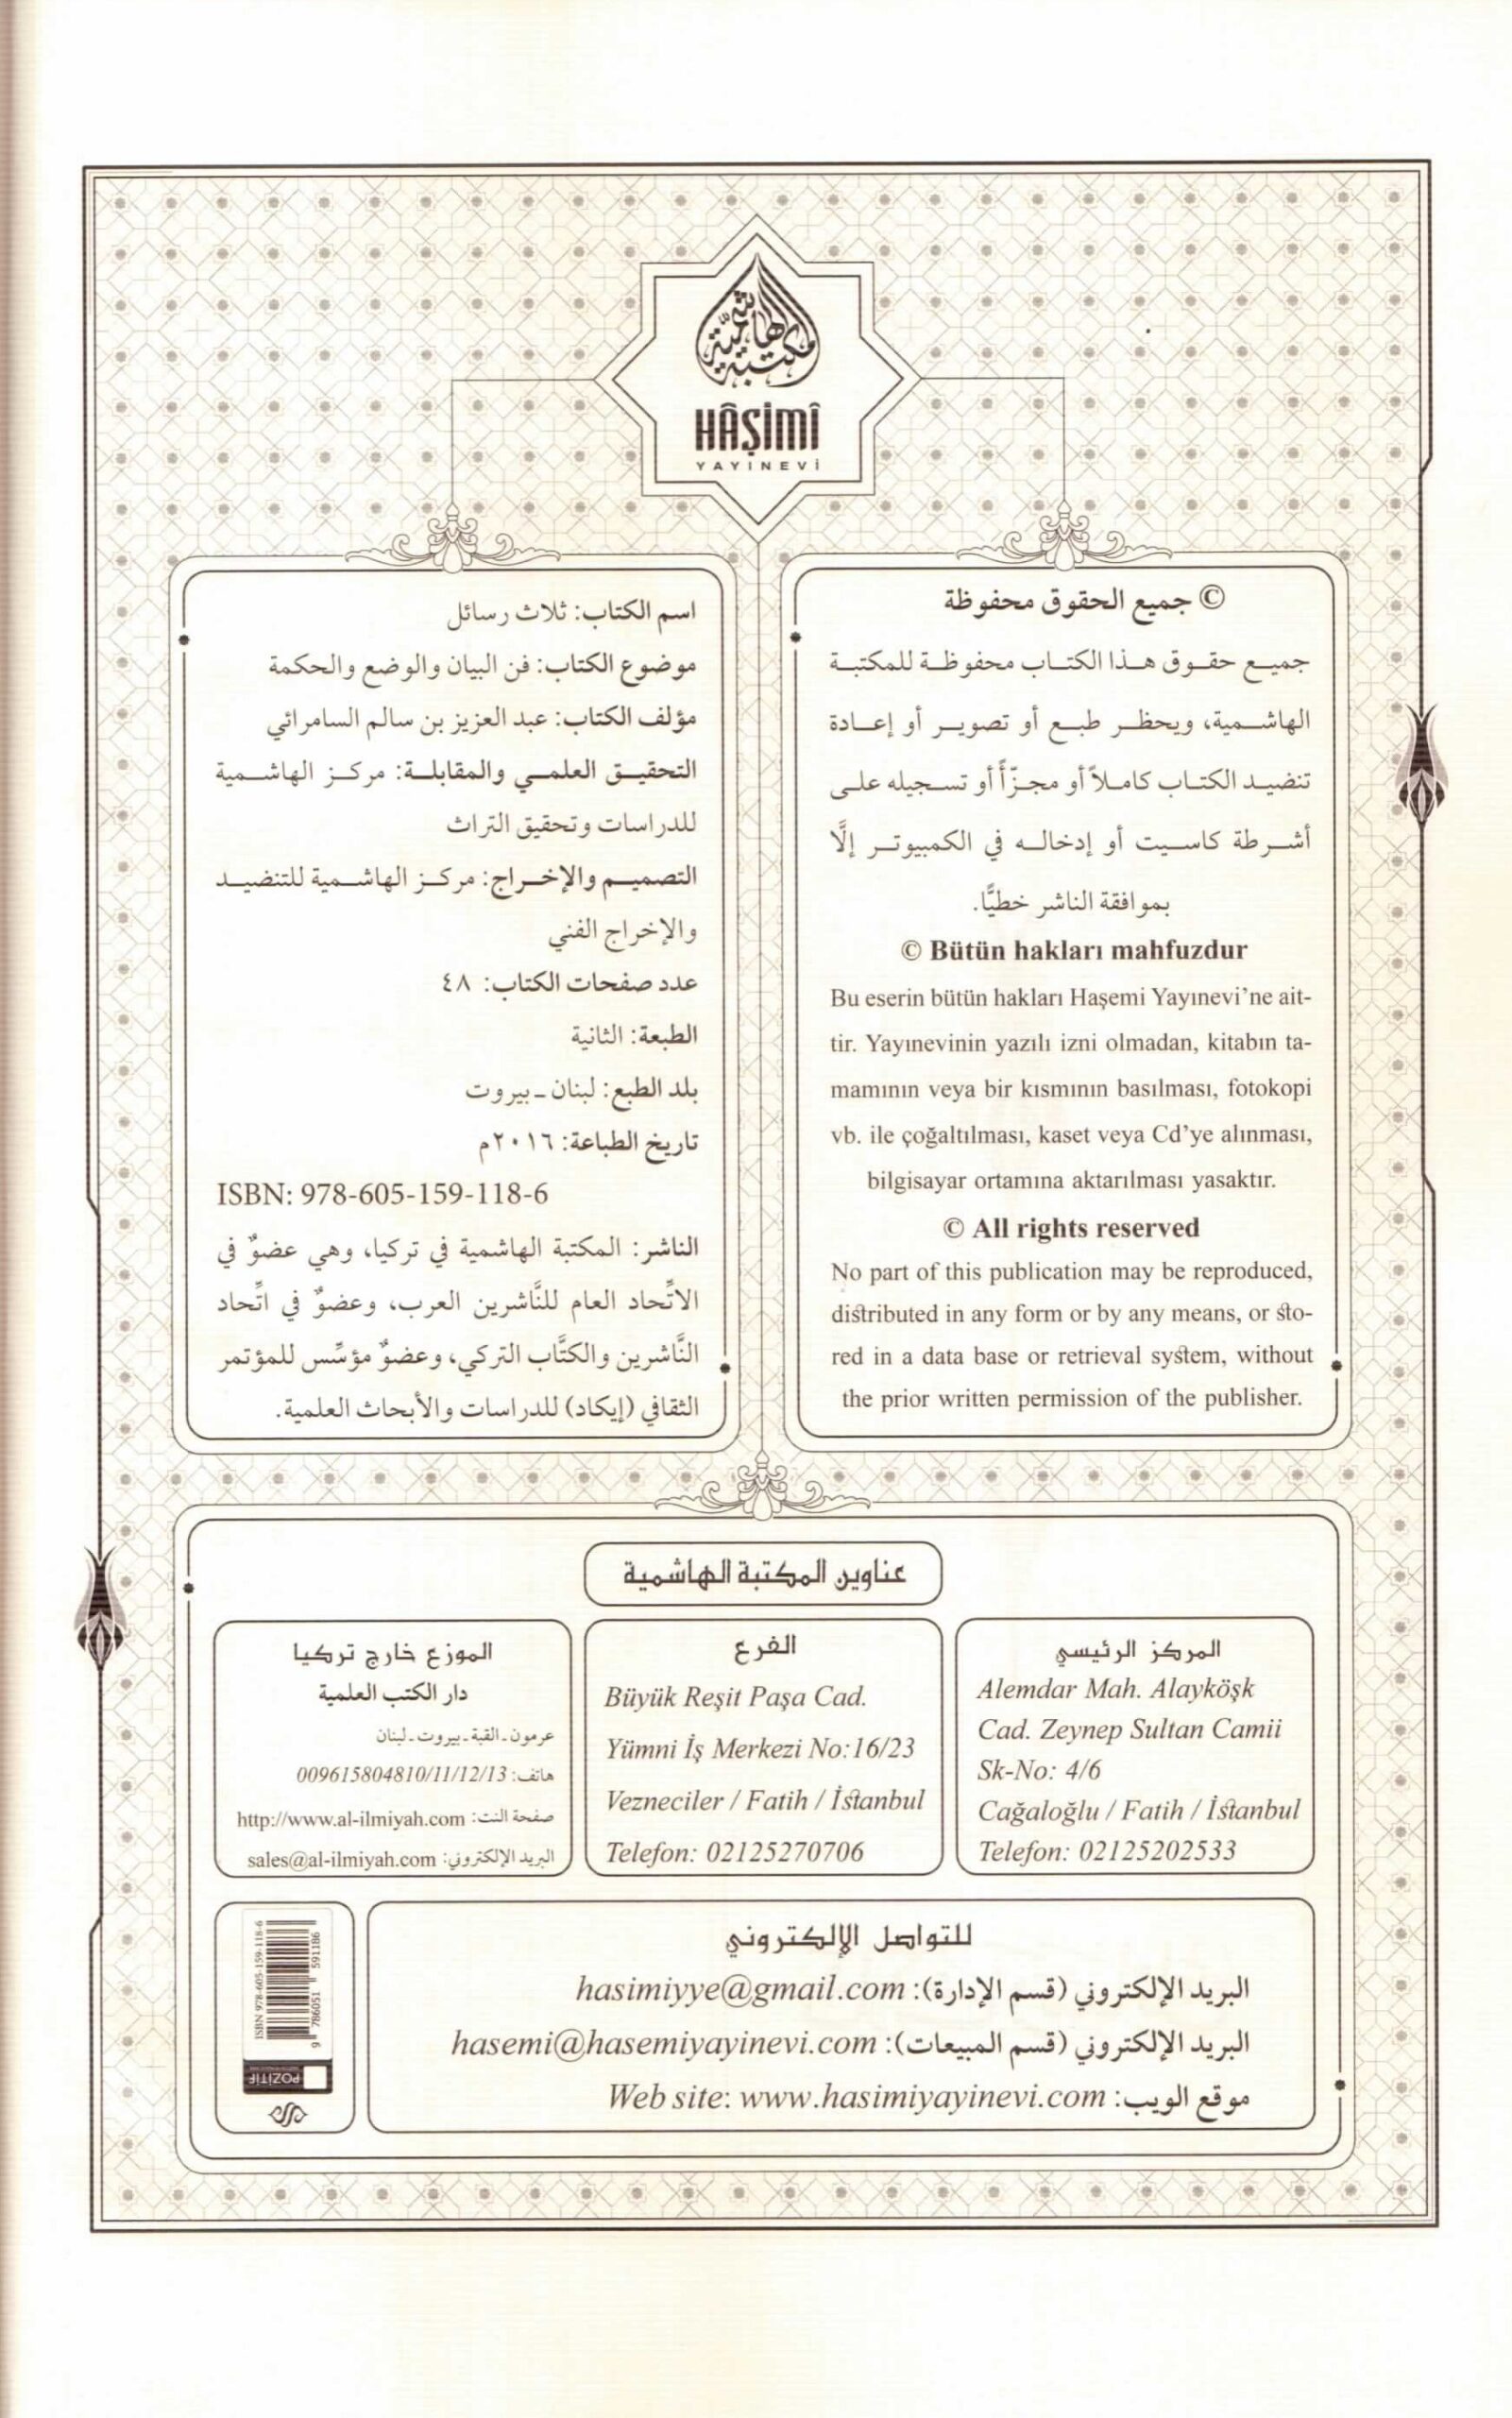 مكتبة الهاشمية
HÂŞİMÎ
YAYINEVİ
© جميع الحقوق محفوظة
جميع حقوق هذا الكتاب محفوظة للمكتبة
الهاشمية، ويحظر طبع أو تصوير أو إعادة
تنضيد الكتاب كاملاً أو مجزّأً أو تسجيله على
أشرطة كاسيت أو إدخاله في الكمبيوتر إلَّا
بموافقة الناشر خطيًّا.
© Bütün hakları mahfuzdur
Bu eserin bütün hakları Haşemi Yayınevi’ne ait-
tir. Yayınevinin yazılı izni olmadan, kitabın ta-
mamının veya bir kısmının basılması, fotokopi
vb. ile çoğaltılması, kaset veya Cd’ye alınması,
bilgisayar ortamına aktarılması yasaktır.
© All rights reserved
No part of this publication may be reproduced,
distributed in any form or by any means, or sto-
red in a data base or retrieval system, without
the prior written permission of the publisher.
اسم الكتاب: ثلاث رسائل
موضوع الكتاب: فن البيان والوضع والحكمة
مؤلف الكتاب: عبد العزيز بن سالم السامرائي
التحقيق العلمي والمقابلة: مركز الهاشمية
للدراسات وتحقيق التراث
التصميم والإخراج: مركز الهاشمية للتنضيد
والإخراج الفني
عدد صفحات الكتاب: ٤٨
الطبعة: الثانية
بلد الطبع: لبنان ـ بيروت
تاريخ الطباعة: ٢٠١٦م
ISBN: 978-605-159-118-6
الناشر: المكتبة الهاشمية في تركيا، وهي عضوٌ في
الاتِّحاد العام للنَّاشرين العرب، وعضوٌ في اتِّحاد
النَّاشرين والكتَّاب التركي، وعضوٌ مؤسِّس للمؤتمر
الثقافي (إيكاد) للدراسات والأبحاث العلمية.
عناوين المكتبة الهاشمية
المركز الرئيسي
Alemdar Mah. Alayköşk
Cad. Zeynep Sultan Camii
Sk-No: 4/6
Cağaloğlu / Fatih / İstanbul
Telefon: 02125202533
الفرع
Büyük Reşit Paşa Cad.
Yümni İş Merkezi No:16/23
Vezneciler / Fatih / İstanbul
Telefon: 02125270706
الموزع خارج تركيا
دار الكتب العلمية
عرمون ـ القبة ـ بيروت ـ لبنان
هاتف: 009615804810/11/12/13
صفحة النت: http://www.al-ilmiyah.com
البريد الإلكتروني: sales@al-ilmiyah.com
للتواصل الإلكتروني
البريد الإلكتروني (قسم الإدارة): hasimiyye@gmail.com
البريد الإلكتروني (قسم المبيعات): hasemi@hasemiyayinevi.com
موقع الويب: Web site: www.hasimiyayinevi.com
ISBN 978-605-159-118-6
9 786051 591186
POZİTİF